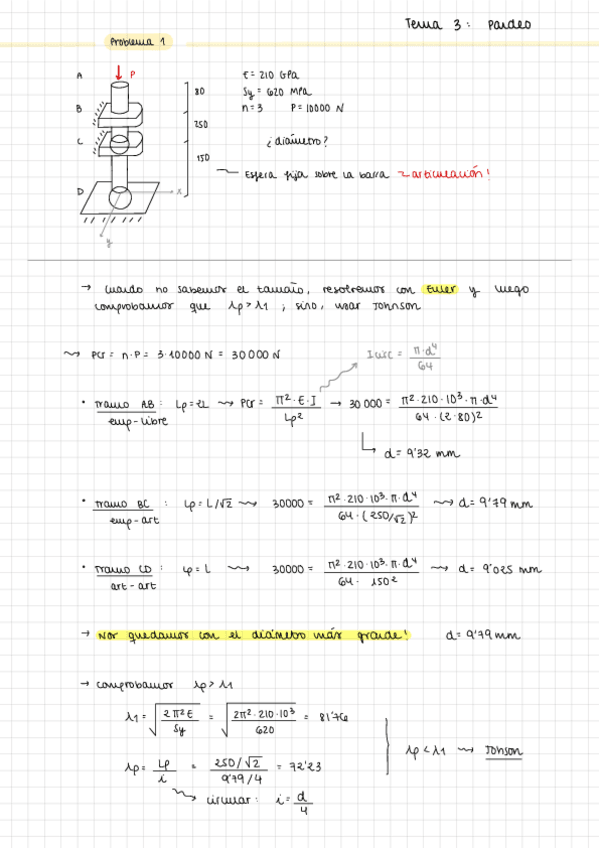 Tema 3: Pandeo
Problema 1
A
P
80
B
250
C
150
D
x
y
E = 210 GPa
Sy = 620 MPa
n = 3 P = 10000 N
¿diámetro?
Esfera fija sobre la barra → articulación!
→ Cuando no sabemos el tamaño, resolvemos con Euler y luego
comprobamos que λp > λ1 ; sino, usar Johnson
Pcr = n·P = 3·10000 N = 30000 N
I circ = π·d⁴ / 64
• Tramo AB: Lp = 2L Pcr = π²·E·I / Lp² → 30000 = π²·210·10³·π·d⁴ / 64·(2·80)²
emp-libre
d = 9'32 mm
• Tramo BC: Lp = L/√2 30000 = π²·210·10³·π·d⁴ / 64·(250/√2)² d = 9'79 mm
emp-art
• Tramo CD: Lp = L 30000 = π²·210·10³·π·d⁴ / 64·150² d = 9'025 mm
art-art
→ Nos quedamos con el diámetro más grande! d = 9'79 mm
→ Comprobamos λp > λ1
λ1 = √(2π²E / Sy) = √(2π²·210·10³ / 620) = 81'76
λp < λ1 Jonson
λp = Lp / i = 250/√2 / 9'79/4 = 72'23
circular: i = d / 4